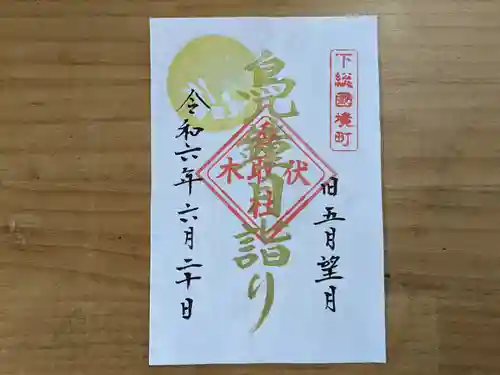 下総國境町
旧五月望月
鳥喰月詣り
伏木
香取社
令和六年六月二十日